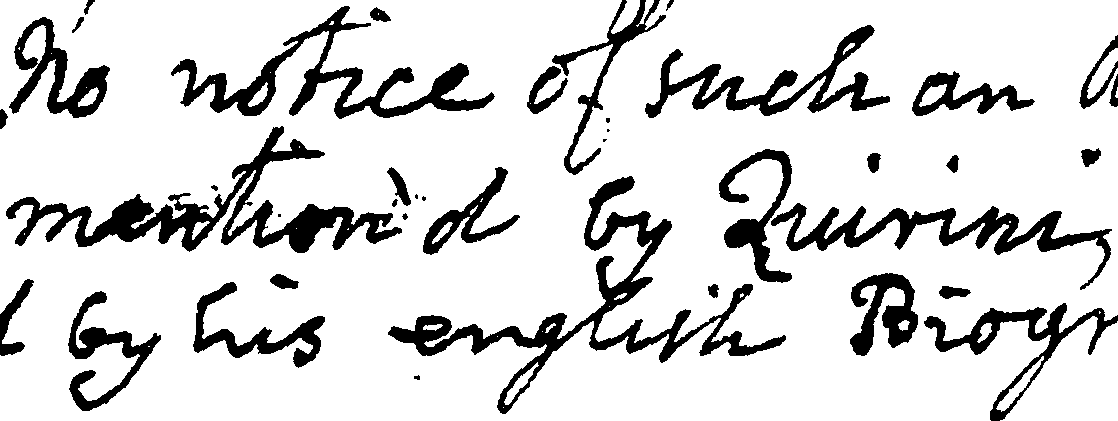 No notice of such an
mention'd by Quirini,
by his english Biogr